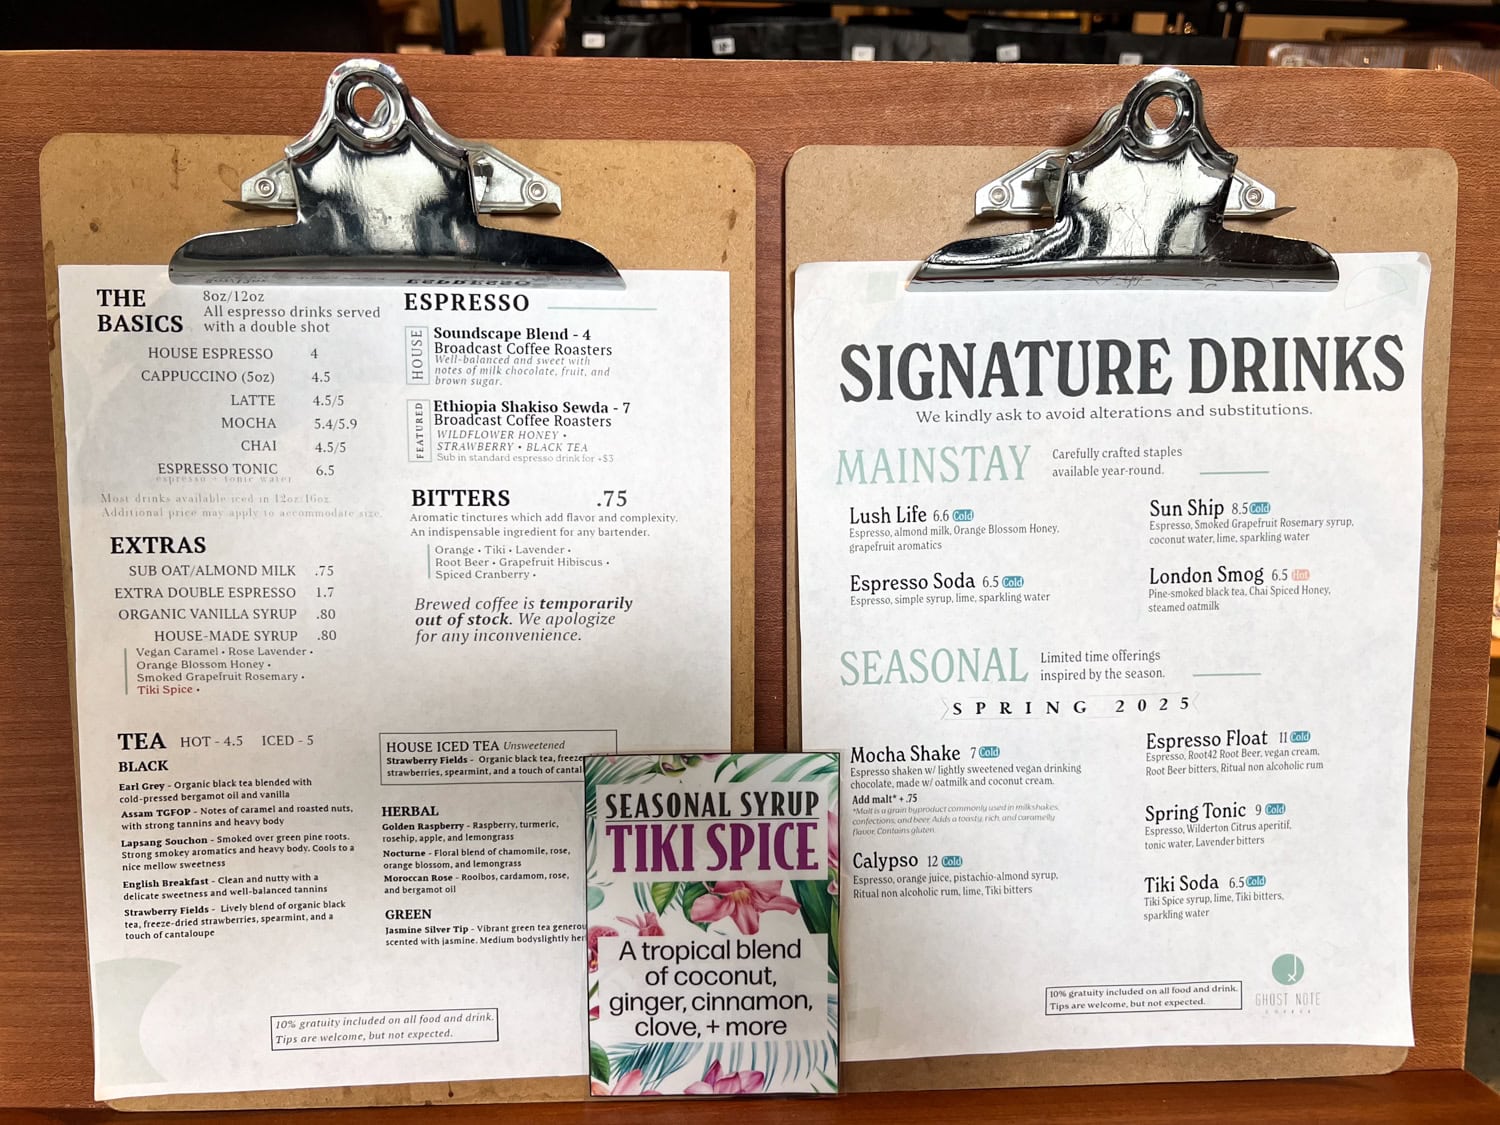 THE
BASICS
8oz/12oz
All espresso drinks served
with a double shot
HOUSE ESPRESSO 4
CAPPUCCINO (5oz) 4.5
LATTE 4.5/5
MOCHA 5.4/5.9
CHAI 4.5/5
ESPRESSO TONIC 6.5
espresso + tonic water
Most drinks available iced in 12oz/16oz.
Additional price may apply to accommodate size.
EXTRAS
SUB OAT/ALMOND MILK .75
EXTRA DOUBLE ESPRESSO 1.7
ORGANIC VANILLA SYRUP .80
HOUSE-MADE SYRUP .80
Vegan Caramel • Rose Lavender •
Orange Blossom Honey •
Smoked Grapefruit Rosemary •
Tiki Spice •
ESPRESSO
HOUSE
Soundscape Blend - 4
Broadcast Coffee Roasters
Well-balanced and sweet with
notes of milk chocolate, fruit, and
brown sugar.
FEATURED
Ethiopia Shakiso Sewda - 7
Broadcast Coffee Roasters
WILDFLOWER HONEY •
STRAWBERRY • BLACK TEA
Sub in standard espresso drink for +$3
BITTERS .75
Aromatic tinctures which add flavor and complexity.
An indispensable ingredient for any bartender.
Orange • Tiki • Lavender •
Root Beer • Grapefruit Hibiscus •
Spiced Cranberry •
Brewed coffee is temporarily
out of stock. We apologize
for any inconvenience.
TEA HOT - 4.5 ICED - 5
BLACK
Earl Grey - Organic black tea blended with
cold-pressed bergamot oil and vanilla
Assam TGFOP - Notes of caramel and roasted nuts,
with strong tannins and heavy body
Lapsang Souchon - Smoked over green pine roots.
Strong smokey aromatics and heavy body. Cools to a
nice mellow sweetness
English Breakfast - Clean and nutty with a
delicate sweetness and well-balanced tannins
Strawberry Fields - Lively blend of organic black
tea, freeze-dried strawberries, spearmint, and a
touch of cantaloupe
HOUSE ICED TEA Unsweetened
Strawberry Fields - Organic black tea, freeze
strawberries, spearmint, and a touch of cantal
HERBAL
Golden Raspberry - Raspberry, turmeric,
rosehip, apple, and lemongrass
Nocturne - Floral blend of chamomile, rose,
orange blossom, and lemongrass
Moroccan Rose - Rooibos, cardamom, rose,
and bergamot oil
GREEN
Jasmine Silver Tip - Vibrant green tea generou
scented with jasmine. Medium bodyslightly her
10% gratuity included on all food and drink.
Tips are welcome, but not expected.
SEASONAL SYRUP
TIKI SPICE
A tropical blend
of coconut,
ginger, cinnamon,
clove, + more
SIGNATURE DRINKS
We kindly ask to avoid alterations and substitutions.
MAINSTAY
Carefully crafted staples
available year-round.
Lush Life 6.6 Cold
Espresso, almond milk, Orange Blossom Honey,
grapefruit aromatics
Espresso Soda 6.5 Cold
Espresso, simple syrup, lime, sparkling water
Sun Ship 8.5 Cold
Espresso, Smoked Grapefruit Rosemary syrup,
coconut water, lime, sparkling water
London Smog 6.5 Hot
Pine-smoked black tea, Chai Spiced Honey,
steamed oatmilk
SEASONAL
Limited time offerings
inspired by the season.
SPRING 2025
Mocha Shake 7 Cold
Espresso shaken w/ lightly sweetened vegan drinking
chocolate, made w/ oatmilk and coconut cream.
Add malt* + .75
*Malt is a grain byproduct commonly used in milkshakes,
confections, and beer. Adds a toasty, rich, and caramelly
flavor. Contains gluten.
Calypso 12 Cold
Espresso, orange juice, pistachio-almond syrup,
Ritual non alcoholic rum, lime, Tiki bitters
Espresso Float 11 Cold
Espresso, Root42 Root Beer, vegan cream,
Root Beer bitters, Ritual non alcoholic rum
Spring Tonic 9 Cold
Espresso, Wilderton Citrus aperitif,
tonic water, Lavender bitters
Tiki Soda 6.5 Cold
Tiki Spice syrup, lime, Tiki bitters,
sparkling water
10% gratuity included on all food and drink.
Tips are welcome, but not expected.
GHOST NOTE
COFFEE